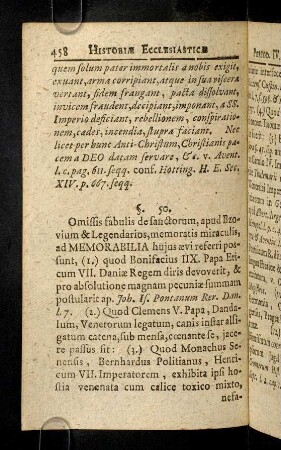 458 HISTORIÆ ECCLESIASTICÆ
quem solum pater immortalis a nobis exigit,
exuant, arma corripiant, atque in sua viscera
versant, fidem frangant, pacta dissolvant,
invicem fraudent, decipiant, imponant, a SS.
Imperio deficiant, rebellionem, conspiratio-
nem, cædes, incendia, stupra faciant. Nec
licet per hunc Anti-Christum, Christianis pa-
cem a DEO datam servare, &c. v. Avent.
l. c. pag. 611. seqq. conf. Hotting. H. E. Sec.
XIV. p. 667. seqq.
§. 50.
Omissis fabulis de sanctorum, apud Bzo-
vium & Legendarios, memoratis miraculis,
ad MEMORABILIA hujus ævi referri pos-
sunt, (1.) quod Bonifacius IIX. Papa Eri-
cum VII. Daniæ Regem diris devoverit, &
pro absolutione magnam pecuniæ summam
postularit ap. Joh. Is. Pontanum Rer. Dan.
l. 7. (2.) Quod Clemens V. Papa, Danda-
lum, Venetorum legatum, canis instar alli-
gatum catena, sub mensa, cœnante se, jace-
re passus sit: (3.) Quod Monachus Se-
nensis, Bernhardus Politianus, Henri-
cum VII. Imperatorem, exhibita ipsi ho-
stia venenata cum calice toxico mixto,
nefa-